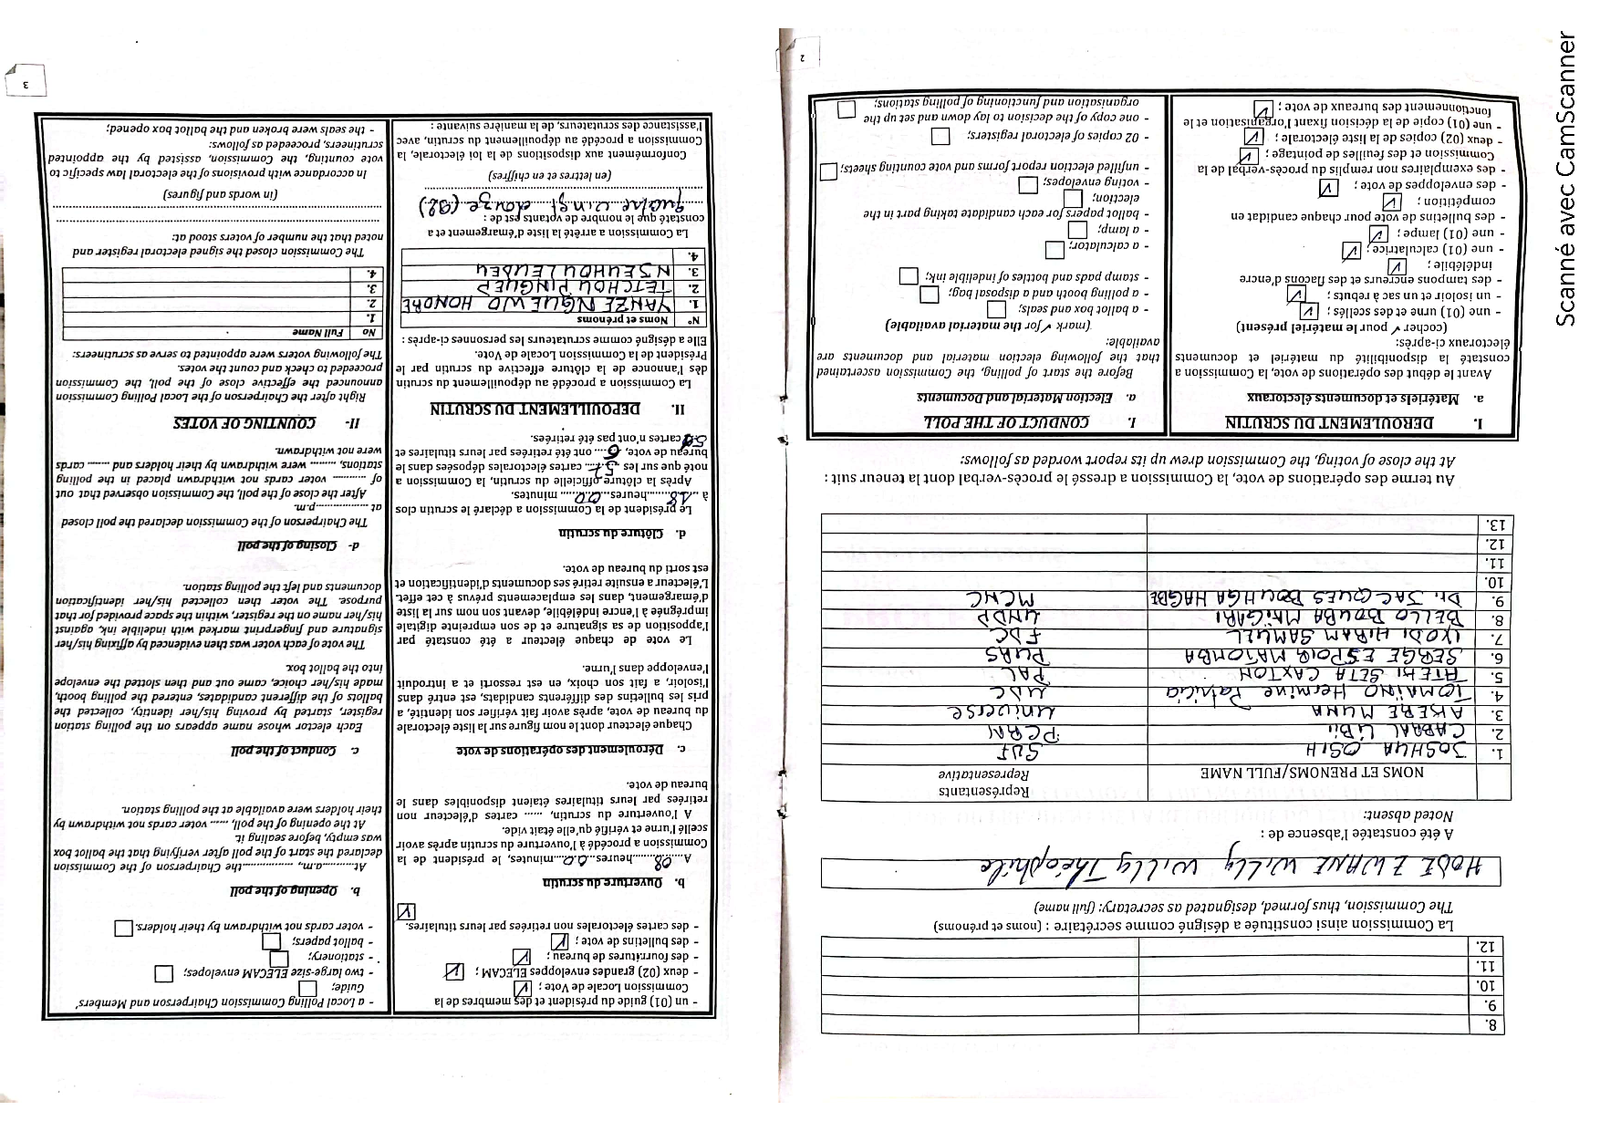 8.
9.
10.
11.
12.
La Commission ainsi constituée a désigné comme secrétaire : (noms et prénoms)
The Commission, thus formed, designated as secretary: (full name)
EWANE Willy Willy Théophile
A été constatée l'absence de :
Noted absent:
NOMS ET PRENOMS/FULL NAME Représentants
Representative
1. JOSHUA OSIH SDF
2. CABRAL LIBII PCRN
3. AKERE MUNA Universe
4. TOMAÏNO Hermine Patricia UDC
5. ATEKI SETA CAXTON PAL
6. SERGE ESPOIR MATOMBA PURS
7. IYODI HIRAM SAMUEL FDC
8. BELLO BOUBA MAÏGARI UNDP
9. Dr. JACQUES BOUHGA HAGBE MCNC
10.
11.
12.
13.
Au terme des opérations de vote, la Commission a dressé le procès-verbal dont la teneur suit :
At the close of voting, the Commission drew up its report worded as follows:
I. DEROULEMENT DU SCRUTIN
a. Matériels et documents électoraux
Avant le début des opérations de vote, la Commission a
constaté la disponibilité du matériel et documents
électoraux ci-après:
(cocher ✓ pour le matériel présent)
- une (01) urne et des scellés ;
- un isoloir et un sac à rebuts ;
- des tampons encreurs et des flacons d'encre
indélébile ;
- une (01) calculatrice ;
- une (01) lampe ;
- des bulletins de vote pour chaque candidat en
compétition ;
- des enveloppes de vote ;
- des exemplaires non remplis du procès-verbal de la
Commission et des feuilles de pointage ;
- deux (02) copies de la liste électorale ;
- une (01) copie de la décision fixant l'organisation et le
fonctionnement des bureaux de vote ;
I. CONDUCT OF THE POLL
a. Election Material and Documents
Before the start of polling, the Commission ascertained
that the following election material and documents are
available:
(mark ✓ for the material available)
- a ballot box and seals;
- a polling booth and a disposal bag;
- stamp pads and bottles of indelible ink;
- a calculator;
- a lamp;
- ballot papers for each candidate taking part in the
election;
- voting envelopes;
- unfilled election report forms and vote counting sheets;
- 02 copies of electoral registers;
- one copy of the decision to lay down and set up the
organisation and functioning of polling stations;
2
- un (01) guide du président et des membres de la
Commission Locale de Vote ;
- deux (02) grandes enveloppes ELECAM ;
- des fournitures de bureau ;
- des bulletins de vote ;
- des cartes électorales non retirées par leurs titulaires.
b. Ouverture du scrutin
A....08....heures....00....minutes, le président de la
Commission a procédé à l'ouverture du scrutin après avoir
scellé l'urne et vérifié qu'elle était vide.
A l'ouverture du scrutin, ...... cartes d'électeur non
retirées par leurs titulaires étaient disponibles dans le
bureau de vote.
c. Déroulement des opérations de vote
Chaque électeur dont le nom figure sur la liste électorale
du bureau de vote, après avoir fait vérifier son identité, a
pris les bulletins des différents candidats, est entré dans
l'isoloir, a fait son choix, en est ressorti et a introduit
l'enveloppe dans l'urne.
Le vote de chaque électeur a été constaté par
l'apposition de sa signature et de son empreinte digitale
imprégnée à l'encre indélébile, devant son nom sur la liste
d'émargement, dans les emplacements prévus à cet effet.
L'électeur a ensuite retiré ses documents d'identification et
est sorti du bureau de vote.
d. Clôture du scrutin
Le président de la Commission a déclaré le scrutin clos
à ..18......heures....00.... minutes.
Après la clôture officielle du scrutin, la Commission a
noté que sur les ..57.. cartes électorales déposées dans le
bureau de vote, ..6.. ont été retirées par leurs titulaires et
cartes n'ont pas été retirées.
II. DEPOUILLEMENT DU SCRUTIN
La Commission a procédé au dépouillement du scrutin
dès l'annonce de la clôture effective du scrutin par le
Président de la Commission Locale de Vote.
Elle a désigné comme scrutateurs les personnes ci-après :
N° Noms et prénoms
1. YANZE NGUEWO HONORE
2. TETCHOU PINGUEP
3. NSEUHOU LEUDEU
4.
La Commission a arrêté la liste d'émargement et a
constaté que le nombre de votants est de :
quatre vingt douze (92)
(en lettres et en chiffres)
Conformément aux dispositions de la loi électorale, la
Commission a procédé au dépouillement du scrutin, avec
l'assistance des scrutateurs, de la manière suivante :
- a Local Polling Commission Chairperson and Members'
Guide;
- two large-size ELECAM envelopes;
- stationery;
- ballot papers;
- voter cards not withdrawn by their holders.
b. Opening of the poll
At...........a.m, ...............the Chairperson of the Commission
declared the start of the poll after verifying that the ballot box
was empty, before sealing it.
At the opening of the poll, ...... voter cards not withdrawn by
their holders were available at the polling station.
c. Conduct of the poll
Each elector whose name appears on the polling station
register, started by proving his/her identity, collected the
ballots of the different candidates, entered the polling booth,
made his/her choice, came out and then slotted the envelope
into the ballot box.
The vote of each voter was then evidenced by affixing his/her
signature and fingerprint marked with indelible ink, against
his/her name on the register, within the space provided for that
purpose. The voter then collected his/her identification
documents and left the polling station.
d- Closing of the poll
The Chairperson of the Commission declared the poll closed
at ..................p.m.
After the close of the poll, the Commission observed that out
of ........... voter cards not withdrawn placed in the polling
stations, ........ were withdrawn by their holders and ....... cards
were not withdrawn.
II- COUNTING OF VOTES
Right after the Chairperson of the Local Polling Commission
announced the effective close of the poll, the Commission
proceeded to check and count the votes.
The following voters were appointed to serve as scrutineers:
No Full Name
1.
2.
3.
4.
The Commission closed the signed electoral register and
noted that the number of voters stood at:
(in words and figures)
In accordance with provisions of the electoral law specific to
vote counting, the Commission, assisted by the appointed
scrutineers, proceeded as follows:
- the seals were broken and the ballot box opened;
3
Scanné avec CamScanner